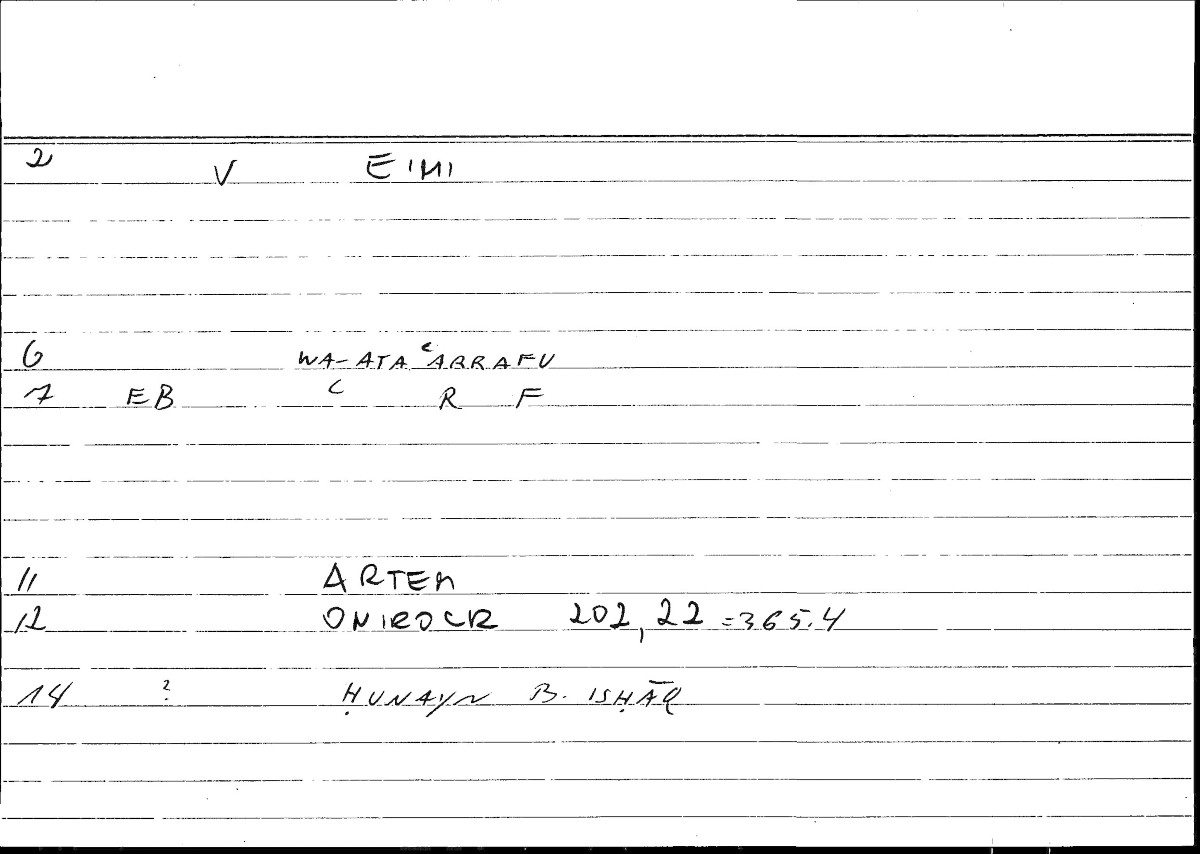 2 V EIMI
6 WA-ATAʿARRAFU
7 EB ʿ R F
11 ARTEM
12 ONIROCR 202,22 =365.4
14 ? ḤUNAYN B. ISḤĀQ